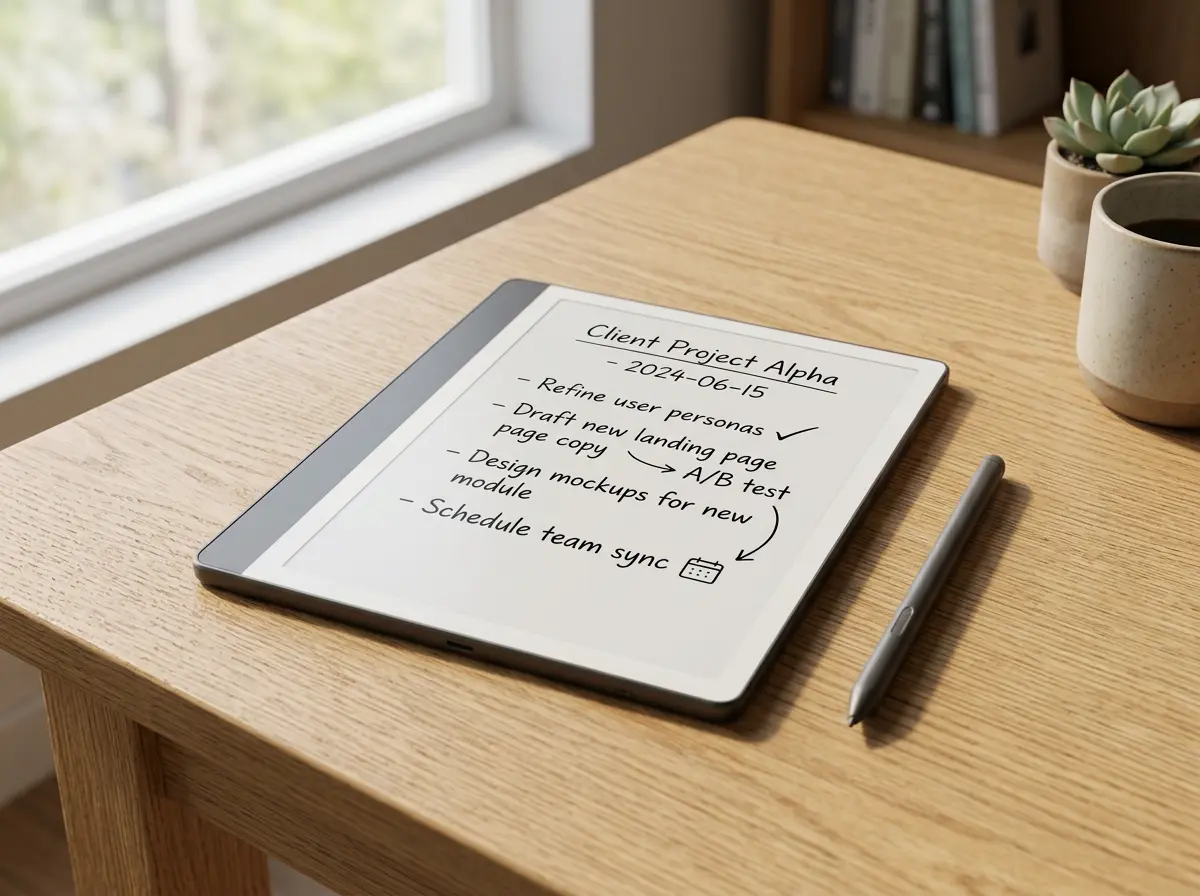 Client Project Alpha
- 2024-06-15
- Refine user personas ✓
- Draft new landing page
page copy → A/B test
- Design mockups for new
module
- Schedule team sync